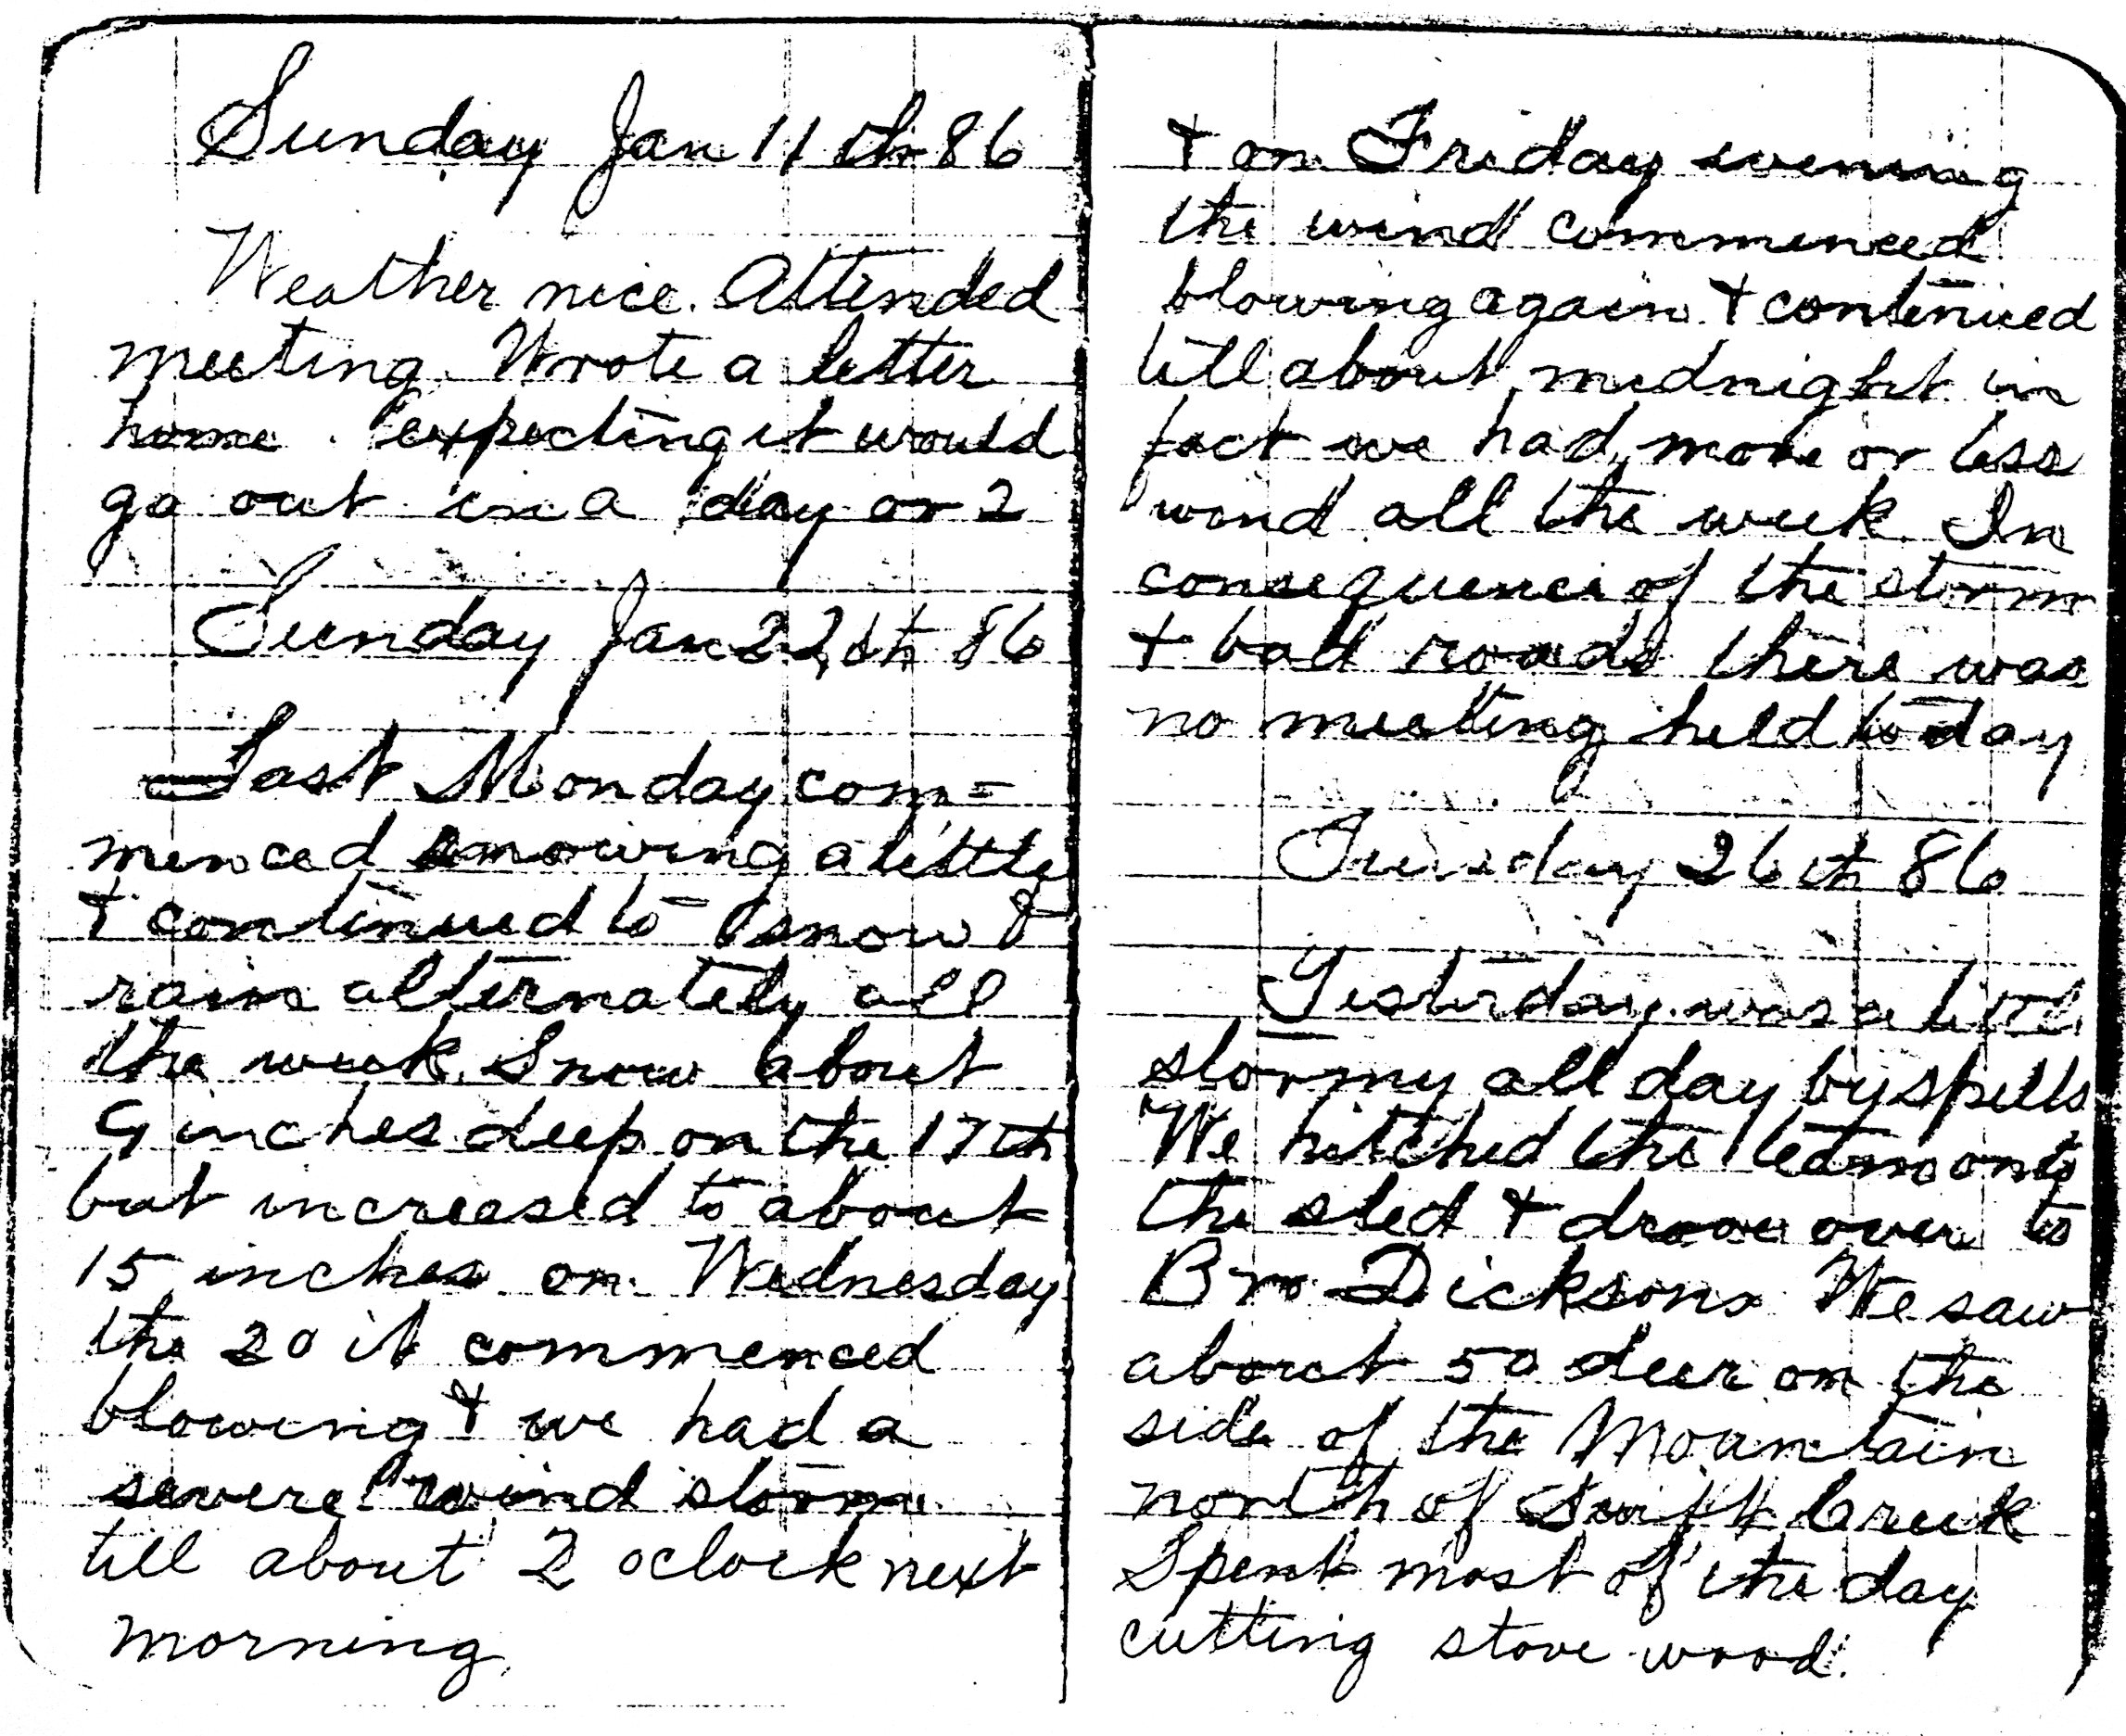 Sunday Jan 11th 86
Weather nice. Attended
meeting. Wrote a letter
home. expecting it would
go out in a day or 2
Sunday Jan 22th 86
Last Monday com=
menced snowing a little
& continued to snow &
rain alternately all
the week. Snow about
9 inches deep on the 17th
but increased to about
15 inches on Wednesday
the 20 it commenced
blowing & we had a
severe wind storm
till about 2 oclock next
morning
& on Friday evening
the wind commenced
blowing again & continued
till about midnight in
fact we had more or less
wind all the week. In
consequence of the storm
& bad roads there was
no meeting held to day
Tuesday 26th 86
Yesterday was a little
stormy all day by spells
We hitched the team onto
the sled & drove over to
Bro Dicksons We saw
about 50 deer on the
side of the Mountain
north of Swift Creek
Spent most of the day
cutting stove wood.